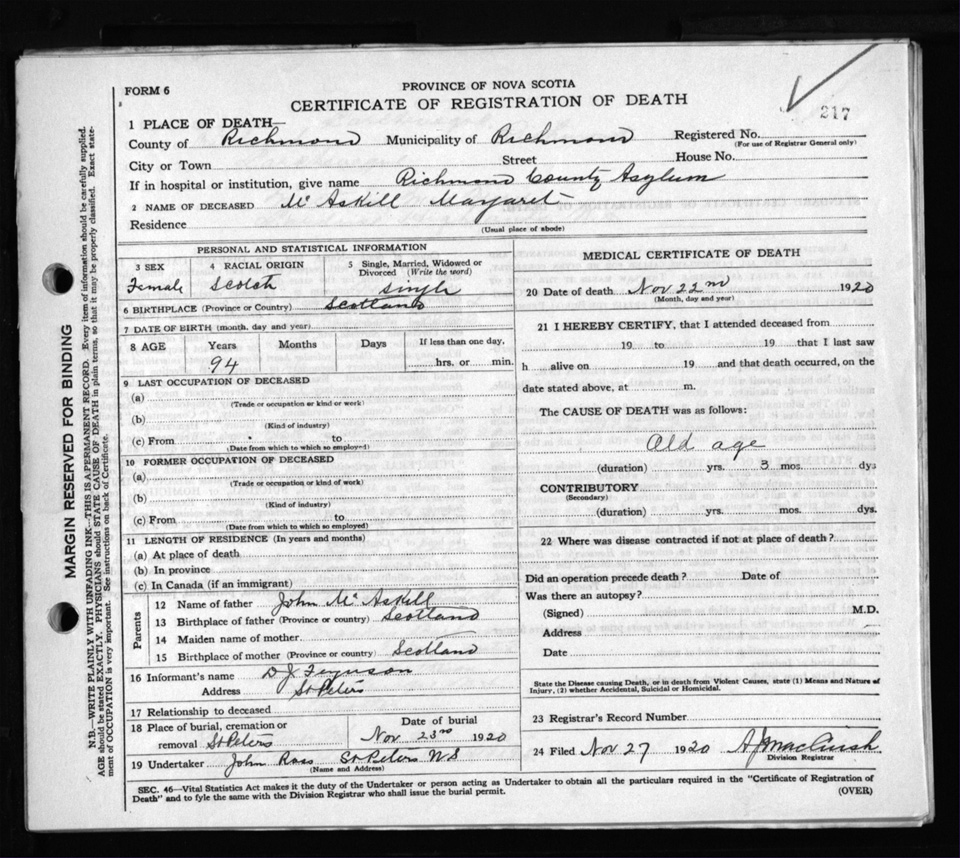 FORM 6
PROVINCE OF NOVA SCOTIA
CERTIFICATE OF REGISTRATION OF DEATH
217
1 PLACE OF DEATH—
County of Richmond Municipality of Richmond Registered No.
(For use of Registrar General only)
City or Town Street House No.
If in hospital or institution, give name Richmond County Asylum
2 NAME OF DECEASED Mc Askill Margaret
Residence
(Usual place of abode)
PERSONAL AND STATISTICAL INFORMATION
3 SEX 4 RACIAL ORIGIN 5 Single, Married, Widowed or Divorced (Write the word)
Female Scotch single
6 BIRTHPLACE (Province or Country) Scotland
7 DATE OF BIRTH (month, day and year)
8 AGE Years Months Days If less than one day,
94 hrs. or min.
9 LAST OCCUPATION OF DECEASED
(a)
(Trade or occupation or kind or work)
(b)
(Kind of industry)
(c) From to
(Date from which to which so employed)
10 FORMER OCCUPATION OF DECEASED
(a)
(Trade or occupation or kind of work)
(b)
(Kind of industry)
(c) From to
(Date from which to which so employed)
11 LENGTH OF RESIDENCE (In years and months)
(a) At place of death
(b) In province
(c) In Canada (if an immigrant)
Parents
12 Name of father John Mc Askill
13 Birthplace of father (Province or country) Scotland
14 Maiden name of mother
15 Birthplace of mother (Province or country) Scotland
16 Informant's name D J Ferguson
Address St Peters
17 Relationship to deceased
18 Place of burial, cremation or removal St Peters
Date of burial
Nov 23rd 1920
19 Undertaker John Ross St Peters N S
(Name and Address)
MEDICAL CERTIFICATE OF DEATH
20 Date of death Nov 22nd 1920
(Month, day and year)
21 I HEREBY CERTIFY, that I attended deceased from
19 to 19 that I last saw
h alive on 19 and that death occurred, on the
date stated above, at m.
The CAUSE OF DEATH was as follows:
Old age
(duration) yrs. 3 mos. dys
CONTRIBUTORY
(Secondary)
(duration) yrs. mos. dys.
22 Where was disease contracted if not at place of death?
Did an operation precede death? Date of
Was there an autopsy?
(Signed) M.D.
Address
Date
State the Disease causing Death, or in death from Violent Causes, state (1) Means and Nature of
Injury, (2) whether Accidental, Suicidal or Homicidal.
23 Registrar's Record Number
24 Filed Nov 27 1920 A J MacCuish
Division Registrar
SEC. 46—Vital Statistics Act makes it the duty of the Undertaker or person acting as Undertaker to obtain all the particulars required in the "Certificate of Registration of
Death" and to fyle the same with the Division Registrar who shall issue the burial permit.
(OVER)
MARGIN RESERVED FOR BINDING
N.B.—WRITE PLAINLY WITH UNFADING INK—THIS IS A PERMANENT RECORD. Every item of information should be carefully supplied.
AGE should be stated EXACTLY. PHYSICIANS should STATE CAUSE OF DEATH in plain terms, so that it may be properly classified. Exact state-
ment of OCCUPATION is very important. See instructions on back of Certificate.